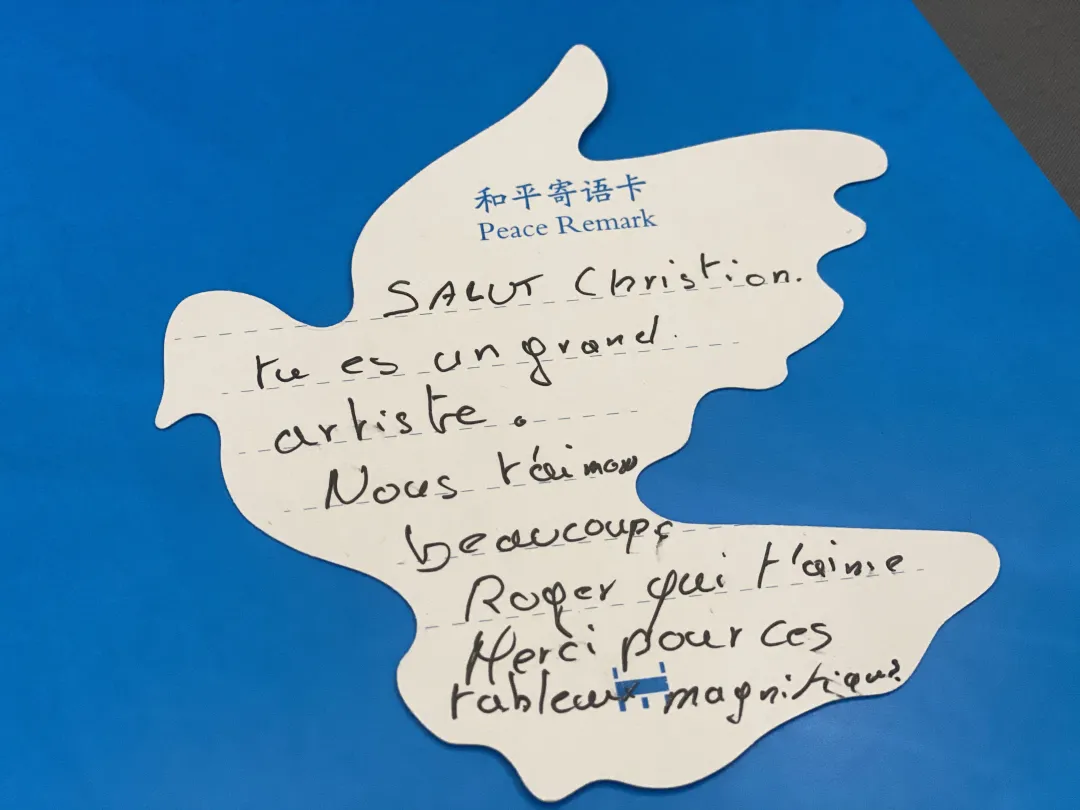 和平寄语卡
Peace Remark
SALUT Christian.
tu es un grand.
artiste.
Nous t'aimons
beaucoup
Roger qui t'aime
Merci pour ces
tableaux magnifiques